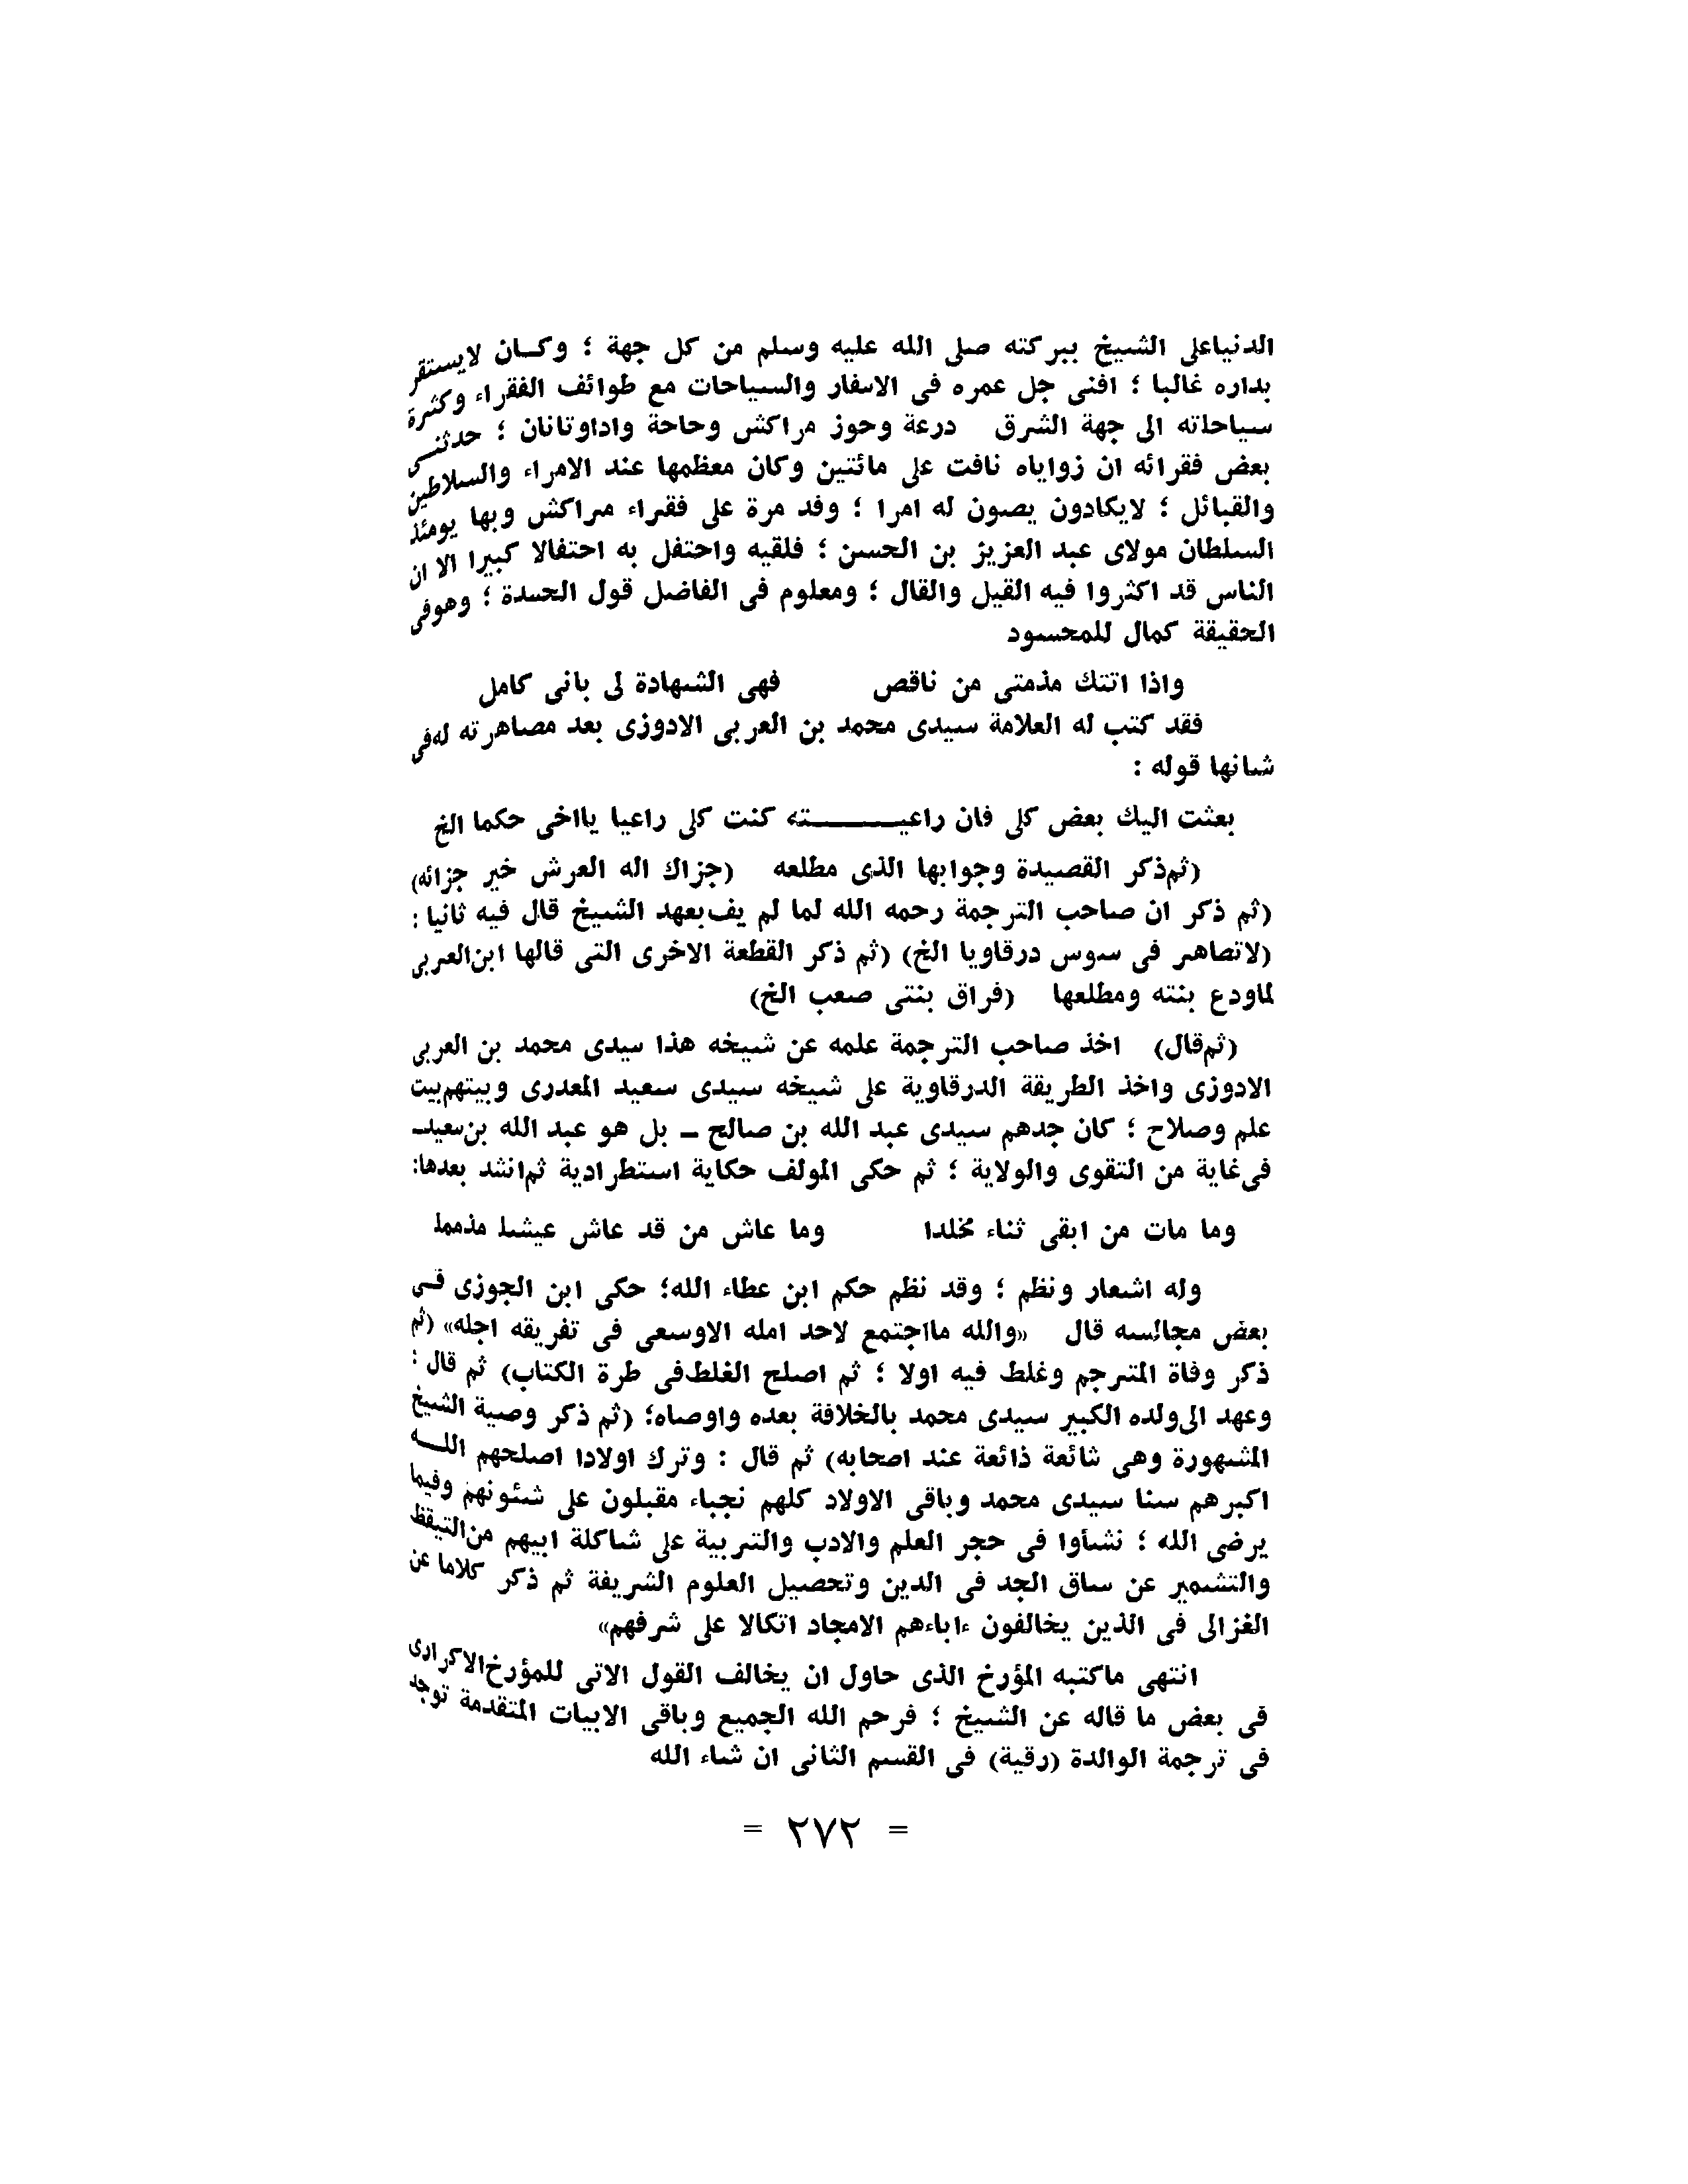 الدنياعلى الشيخ ببركته صلى الله عليه وسلم من كل جهة ؛ وكـان لايستقر
بداره غالبا ؛ افنى جل عمره فى الاسفار والسياحات مع طوائف الفقراء وكثرة
سياحاته الى جهة الشرق درعة وحوز مراكش وحاحة واداوتانان ؛ حدثنى
بعض فقرائه ان زواياه نافت على مائتين وكان معظمها عند الامراء والسلاطين
والقبائل ؛ لايكادون يعصون له امرا ؛ وفد مرة على فقراء مراكش وبها يومئذ
السلطان مولاى عبد العزيز بن الحسن ؛ فلقيه واحتفل به احتفالا كبيرا الا ان
الناس قد اكثروا فيه القيل والقال ؛ ومعلوم فى الفاضل قول الحسدة ؛ وهوفى
الحقيقة كمال للمحسود
واذا اتتك مذمتى من ناقص فهى الشهادة لى بانى كامل
فقد كتب له العلامة سيدى محمد بن العربى الادوزى بعد مصاهرته لهفى
شانها قوله :
بعثت اليك بعض كلى فان راعيـــــــته كنت كلى راعيا يااخى حكما الخ
(ثمذكر القصيدة وجوابها الذى مطلعه (جزاك اله العرش خير جزائه)
(ثم ذكر ان صاحب الترجمة رحمه الله لما لم يف بعهد الشيخ قال فيه ثانيا :
(لاتصاهر فى سوس درقاويا الخ) (ثم ذكر القطعة الاخرى التى قالها ابن العربى
لماودع بنته ومطلعها (فراق بنتى صعب الخ)
(ثمقال) اخذ صاحب الترجمة علمه عن شيخه هذا سيدى محمد بن العربى
الادوزى واخذ الطريقة الدرقاوية على شيخه سيدى سعيد المعدرى وبيتهم بيت
علم وصلاح ؛ كان جدهم سيدى عبد الله بن صالح ــ بل هو عبد الله بن سعيد ــ
فى غاية من التقوى والولاية ؛ ثم حكى المولف حكاية استطرادية ثم انشد بعدها:
وما مات من ابقى ثناء مخلدا وما عاش من قد عاش عيشا مذمما
وله اشعار ونظم ؛ وقد نظم حكم ابن عطاء الله؛ حكى ابن الجوزى فى
بعض مجالسه قال «والله مااجتمع لاحد امله الاوسعى فى تفريقه اجله» (ثم
ذكر وفاة المترجم وغلط فيه اولا ؛ ثم اصلح الغلط فى طرة الكتاب) ثم قال :
وعهد الى ولده الكبير سيدى محمد بالخلافة بعده واوصاه؛ (ثم ذكر وصية الشيخ
المشهورة وهى شائعة ذائعة عند اصحابه) ثم قال : وترك اولادا اصلحهم اللـه
اكبرهم سنا سيدى محمد وباقى الاولاد كلهم نجباء مقبلون على شئونهم وفيما
يرضى الله ؛ نشأوا فى حجر العلم والادب والتربية على شاكلة ابيهم من التيقظ
والتشمير عن ساق الجد فى الدين وتحصيل العلوم الشريفة ثم ذكر كلاما عن
الغزالى فى الذين يخالفون ءاباءهم الامجاد اتكالا على شرفهم»
انتهى ماكتبه المؤرخ الذى حاول ان يخالف القول الاتى للمؤرخ الاكرارى
فى بعض ما قاله عن الشيخ ؛ فرحم الله الجميع وباقى الابيات المتقدمة توجد
فى ترجمة الوالدة (رقية) فى القسم الثانى ان شاء الله
= ٢٧٢ =